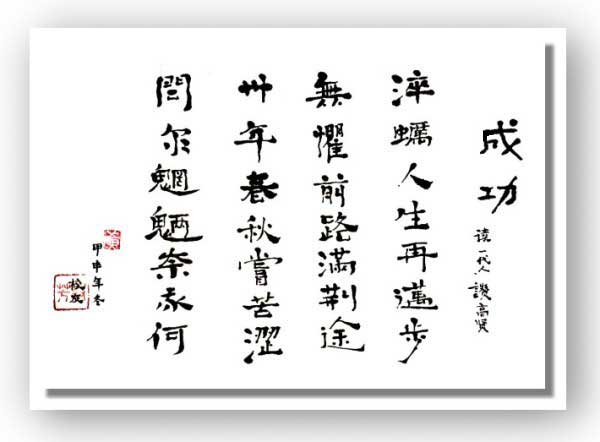 成功
读一代人讚高贤
淬蠣人生再邁步
無懼前路滿荆途
卅年春秋嘗苦澀
閆尔魍魎奈我何
甲申年冬
校友